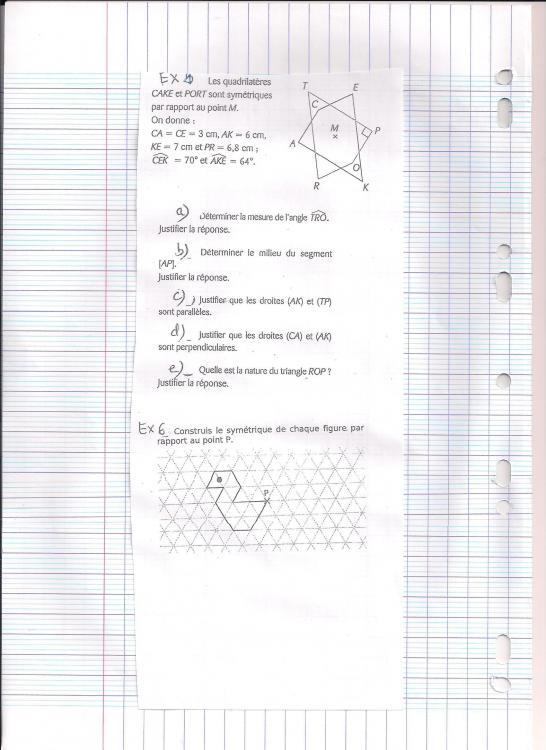 EX Les quadrilatères
CAKE et PORT sont symétriques
par rapport au point M.
On donne :
CA = CE = 3 cm, AK = 6 cm,
KE = 7 cm et PR = 6,8 cm ;
CEK = 70° et AKE = 64°.
T
E
C
M
P
A
O
R
K
a) Déterminer la mesure de l'angle TRO.
Justifier la réponse.
b) Déterminer le milieu du segment
[AP].
Justifier la réponse.
c) Justifier que les droites (AK) et (TP)
sont parallèles.
d) Justifier que les droites (CA) et (AK)
sont perpendiculaires.
e) Quelle est la nature du triangle ROP ?
Justifier la réponse.
Ex 6 Construis le symétrique de chaque figure par
rapport au point P.
P